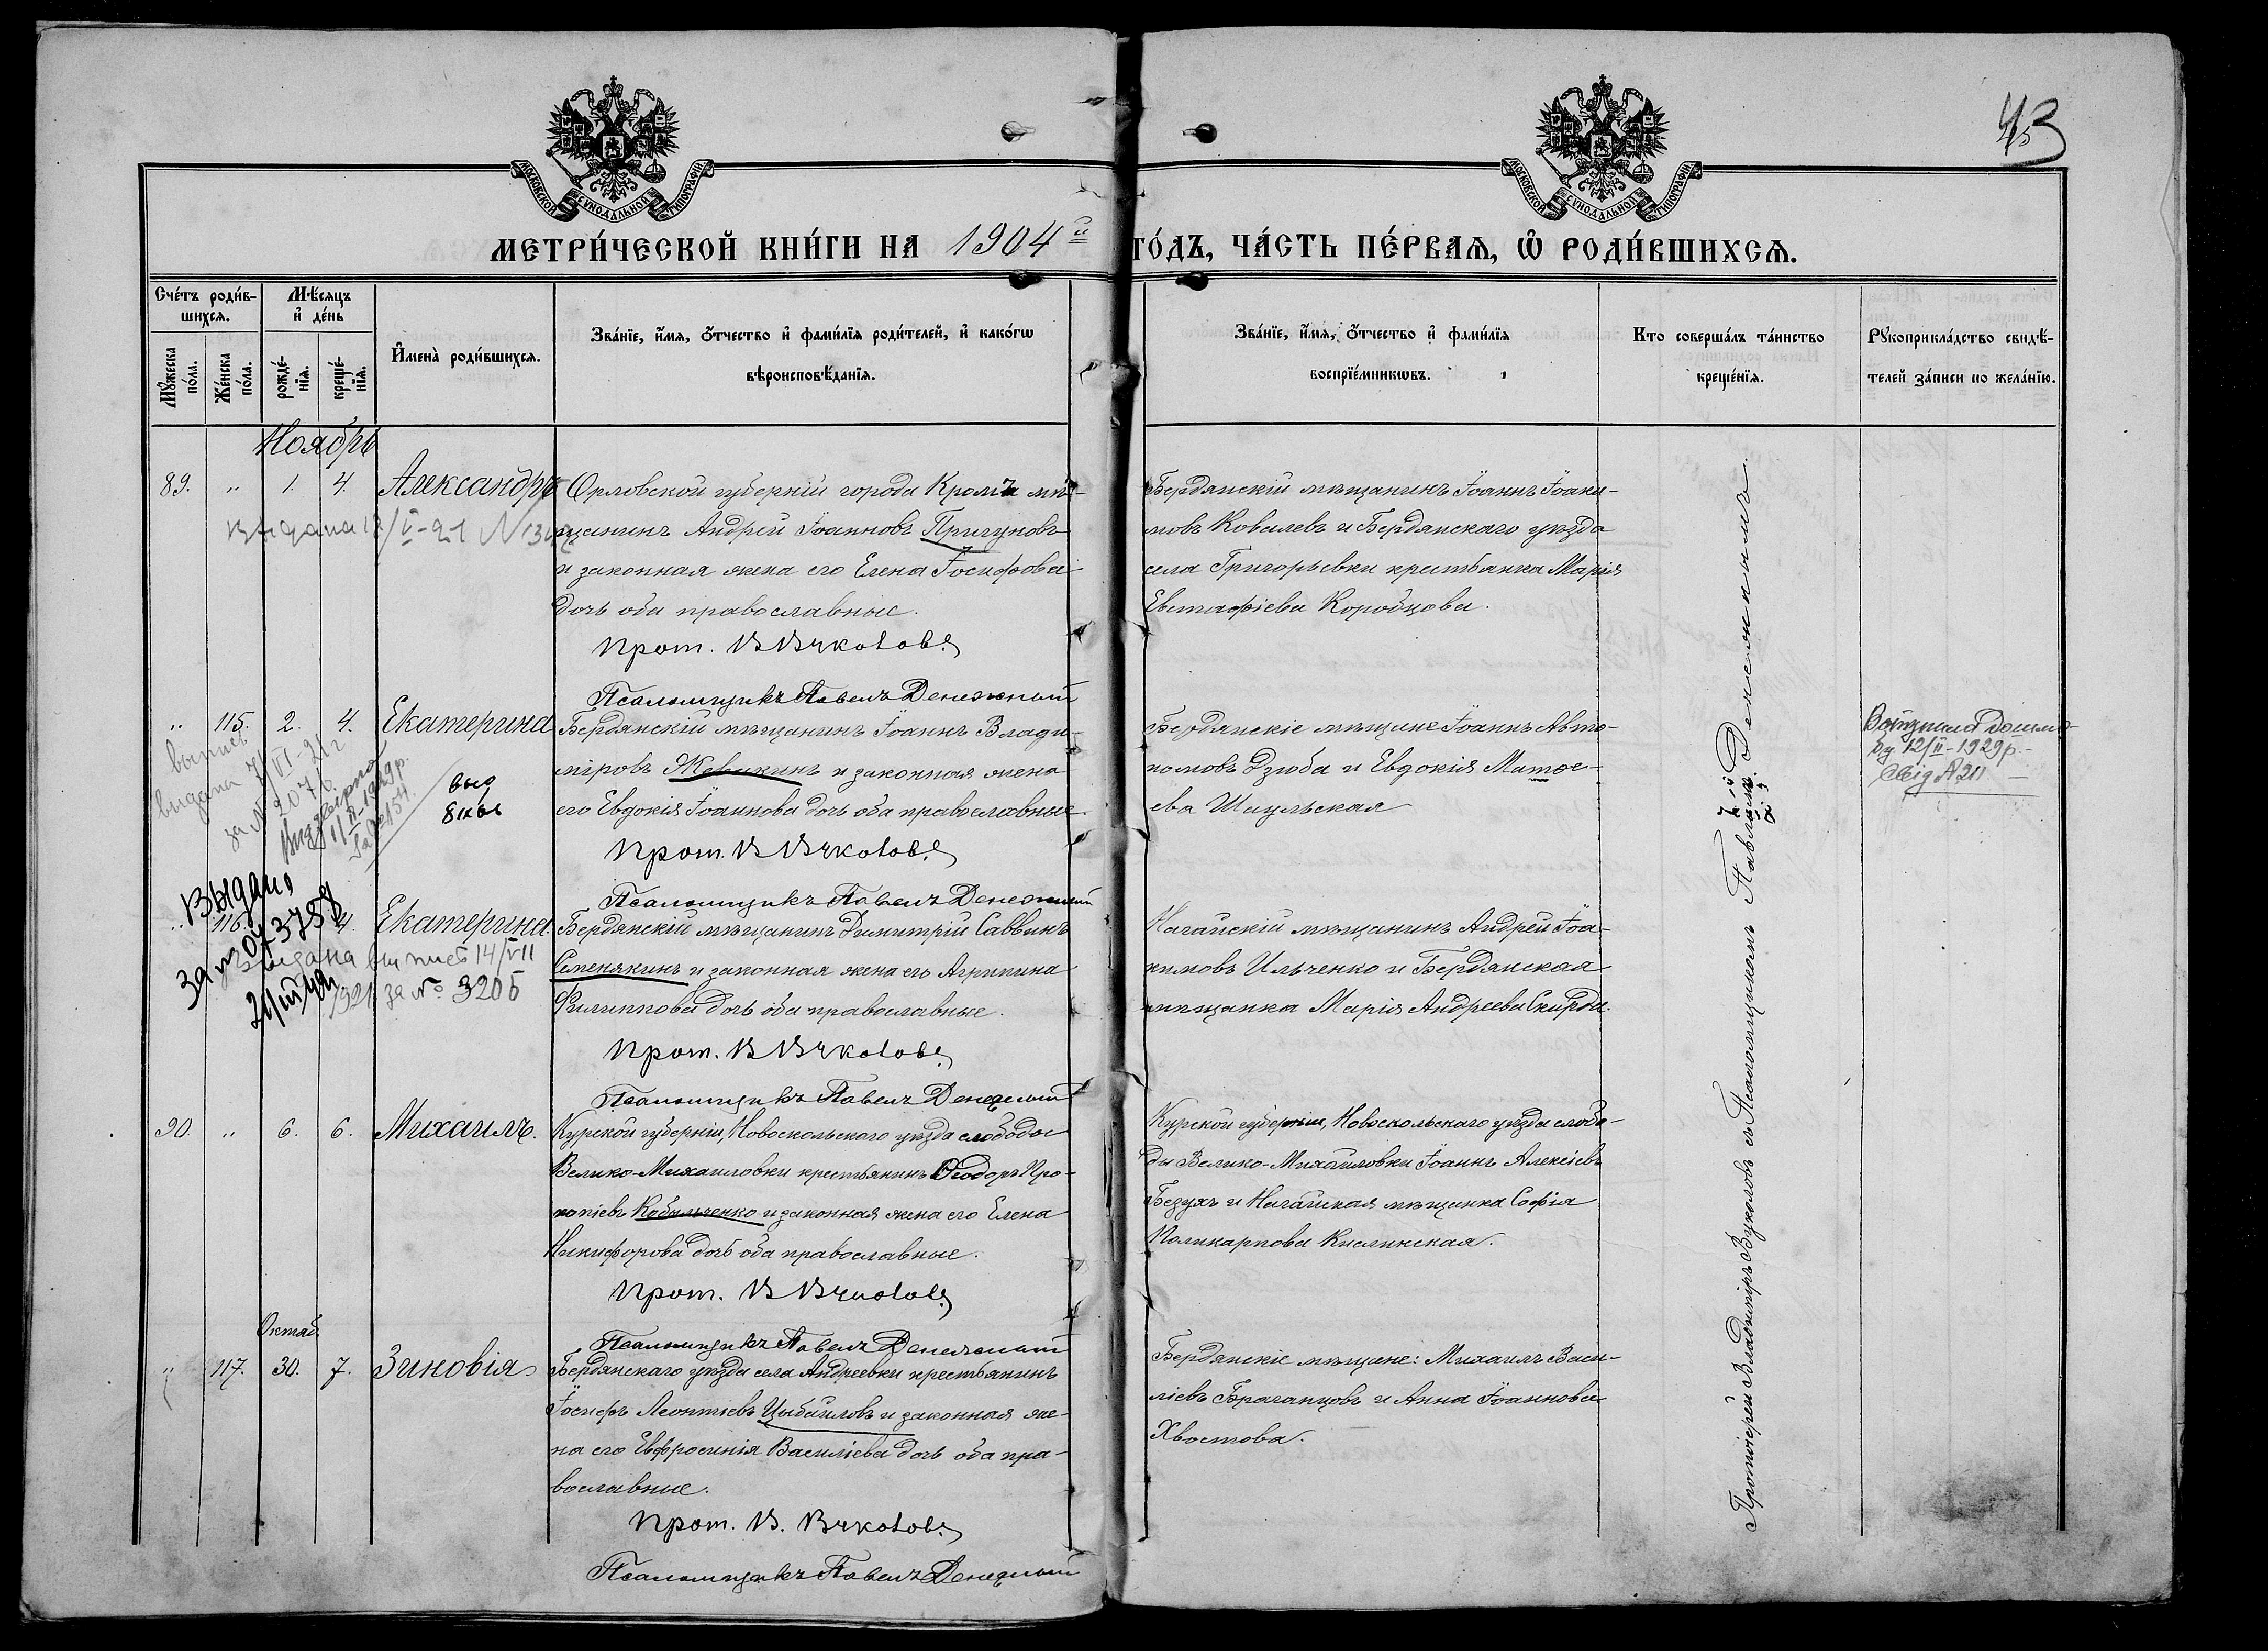 43
МОСКОВСКОЙ СѴНОДАЛЬНОЙ ТИПОГРАФІИ
МОСКОВСКОЙ СѴНОДАЛЬНОЙ ТИПОГРАФІИ
МЕТРИ́ЧЕСКОЙ КНИ́ГИ НА 1904й ГО́ДЪ, ЧА́СТЬ ПЕ́РВАѦ, Ѡ҆ РОДИ́ВШИХСѦ.
Сче́тъ роди́в-
шихсѧ.
Мѣ́сѧцъ
и҆ де́нь
Мꙋ́жеска
по́ла.
Же́нска
по́ла.
рожде́-
нїѧ.
креще́-
нїѧ.
И҆мена̀ роди́вшихсѧ.
Зва́нїе, и҆́мѧ, ѻ҆́тчество и҆ фами́лїѧ роди́телей, и҆ како́гѡ
вѣроисповѣ́данїѧ.
Зва́нїе, и҆́мѧ, ѻ҆́тчество и҆ фами́лїѧ
воспрїе́мникѡвъ.
Кто соверша́лъ та́инство
креще́нїѧ.
Рꙋкоприкла́дство свидѣ́-
телей за́писи по жела́нїю.
Ноябрь
89. " 1. 4. Александръ
Орловской губерніи города Кромъ мѣ-
щанинъ Андрей Іоанновъ Пригуновъ
и законная жена его Елена Іосифова
дочь оба православные.
Прот. В Вуколовъ
Псаломщикъ Павелъ Денежный
Бердянскій мѣщанинъ Іоаннъ Іоаки-
мовъ Ковалевъ и Бердянскаго уѣзда
села Григорьевки крестьянка Марія
Евстафіева Коробцова.
Выдана V-21 N
" 115. 2. 4. Екатерина
Бердянскій мѣщанинъ Іоаннъ Влади-
міровъ Жевакинъ и законная жена
его Евдокія Іоаннова дочь оба православные
Прот. В Вуколовъ
Псаломщикъ Павелъ Денежный
Бердянскіе мѣщане Іоаннъ Авто-
номовъ Дзюба и Евдокія Матѳе-
ева Шацльская
12/II-1929р.-
Свід N 211
выпись
выдана 7/VI-21г
за N 2076
11/II-1929р.
за № 154
выд
" 116. 4. Екатерина.
Бердянскій мѣщанинъ Димитрій Саввинъ
Семенякинъ и законная жена его Агрипина
Филиппова дочь оба православные.
Прот. В Вуколовъ
Псаломщикъ Павелъ Денежный
Нагайскій мѣщанинъ Андрей Іоа-
кимовъ Ильченко и Бердянская
мѣщанка Марія Андреева Скирда.
Выдано
выдана выпись 14/VII
1921 за № 3205
90. " 6. 6. Михаилъ.
Курской губерніи, Новоскольскаго уѣзда слободы
Велико-Михаиловки крестьянинъ Ѳеодоръ Про-
копіевъ Кобыльченко и законная жена его Елена
Никифорова дочь оба православные.
Прот. В Вуколовъ
Псаломщикъ Павелъ Денежный
Курской губерніи, Новоскольскаго уѣзда слобо-
ды Велико-Михаиловки Іоаннъ Алексіевъ
Бедухъ и Нагайская мѣщанка Софія
Поликарпова Кислинская.
Октяб.
" 117. 30. 7. Зиновія
Бердянскаго уѣзда села Андреевки крестьянинъ
Іосифъ Леонтіевъ Цыбайловъ и законная же-
на его Евфросинія Василіева дочь оба пра-
вославные.
Прот. В. Вуколовъ
Псаломщикъ Павелъ Денежный
Бердянскіе мѣщане: Михаилъ Васи-
ліевъ Браганцовъ и Анна Іоаннова
Хвостова.
Протоіерей Владиміръ Вуколовъ съ Псаломщикомъ Павломъ Денежнымъ.